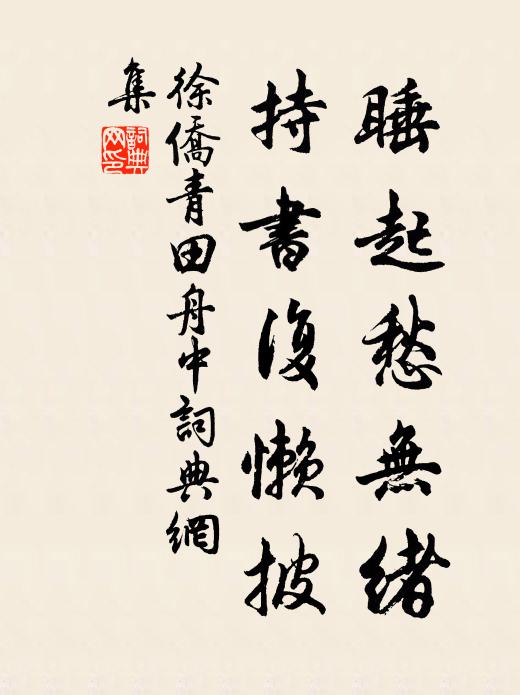 睡起愁無緒
持書復懶披
徐僑青田舟中詞典網
集
詞典網印